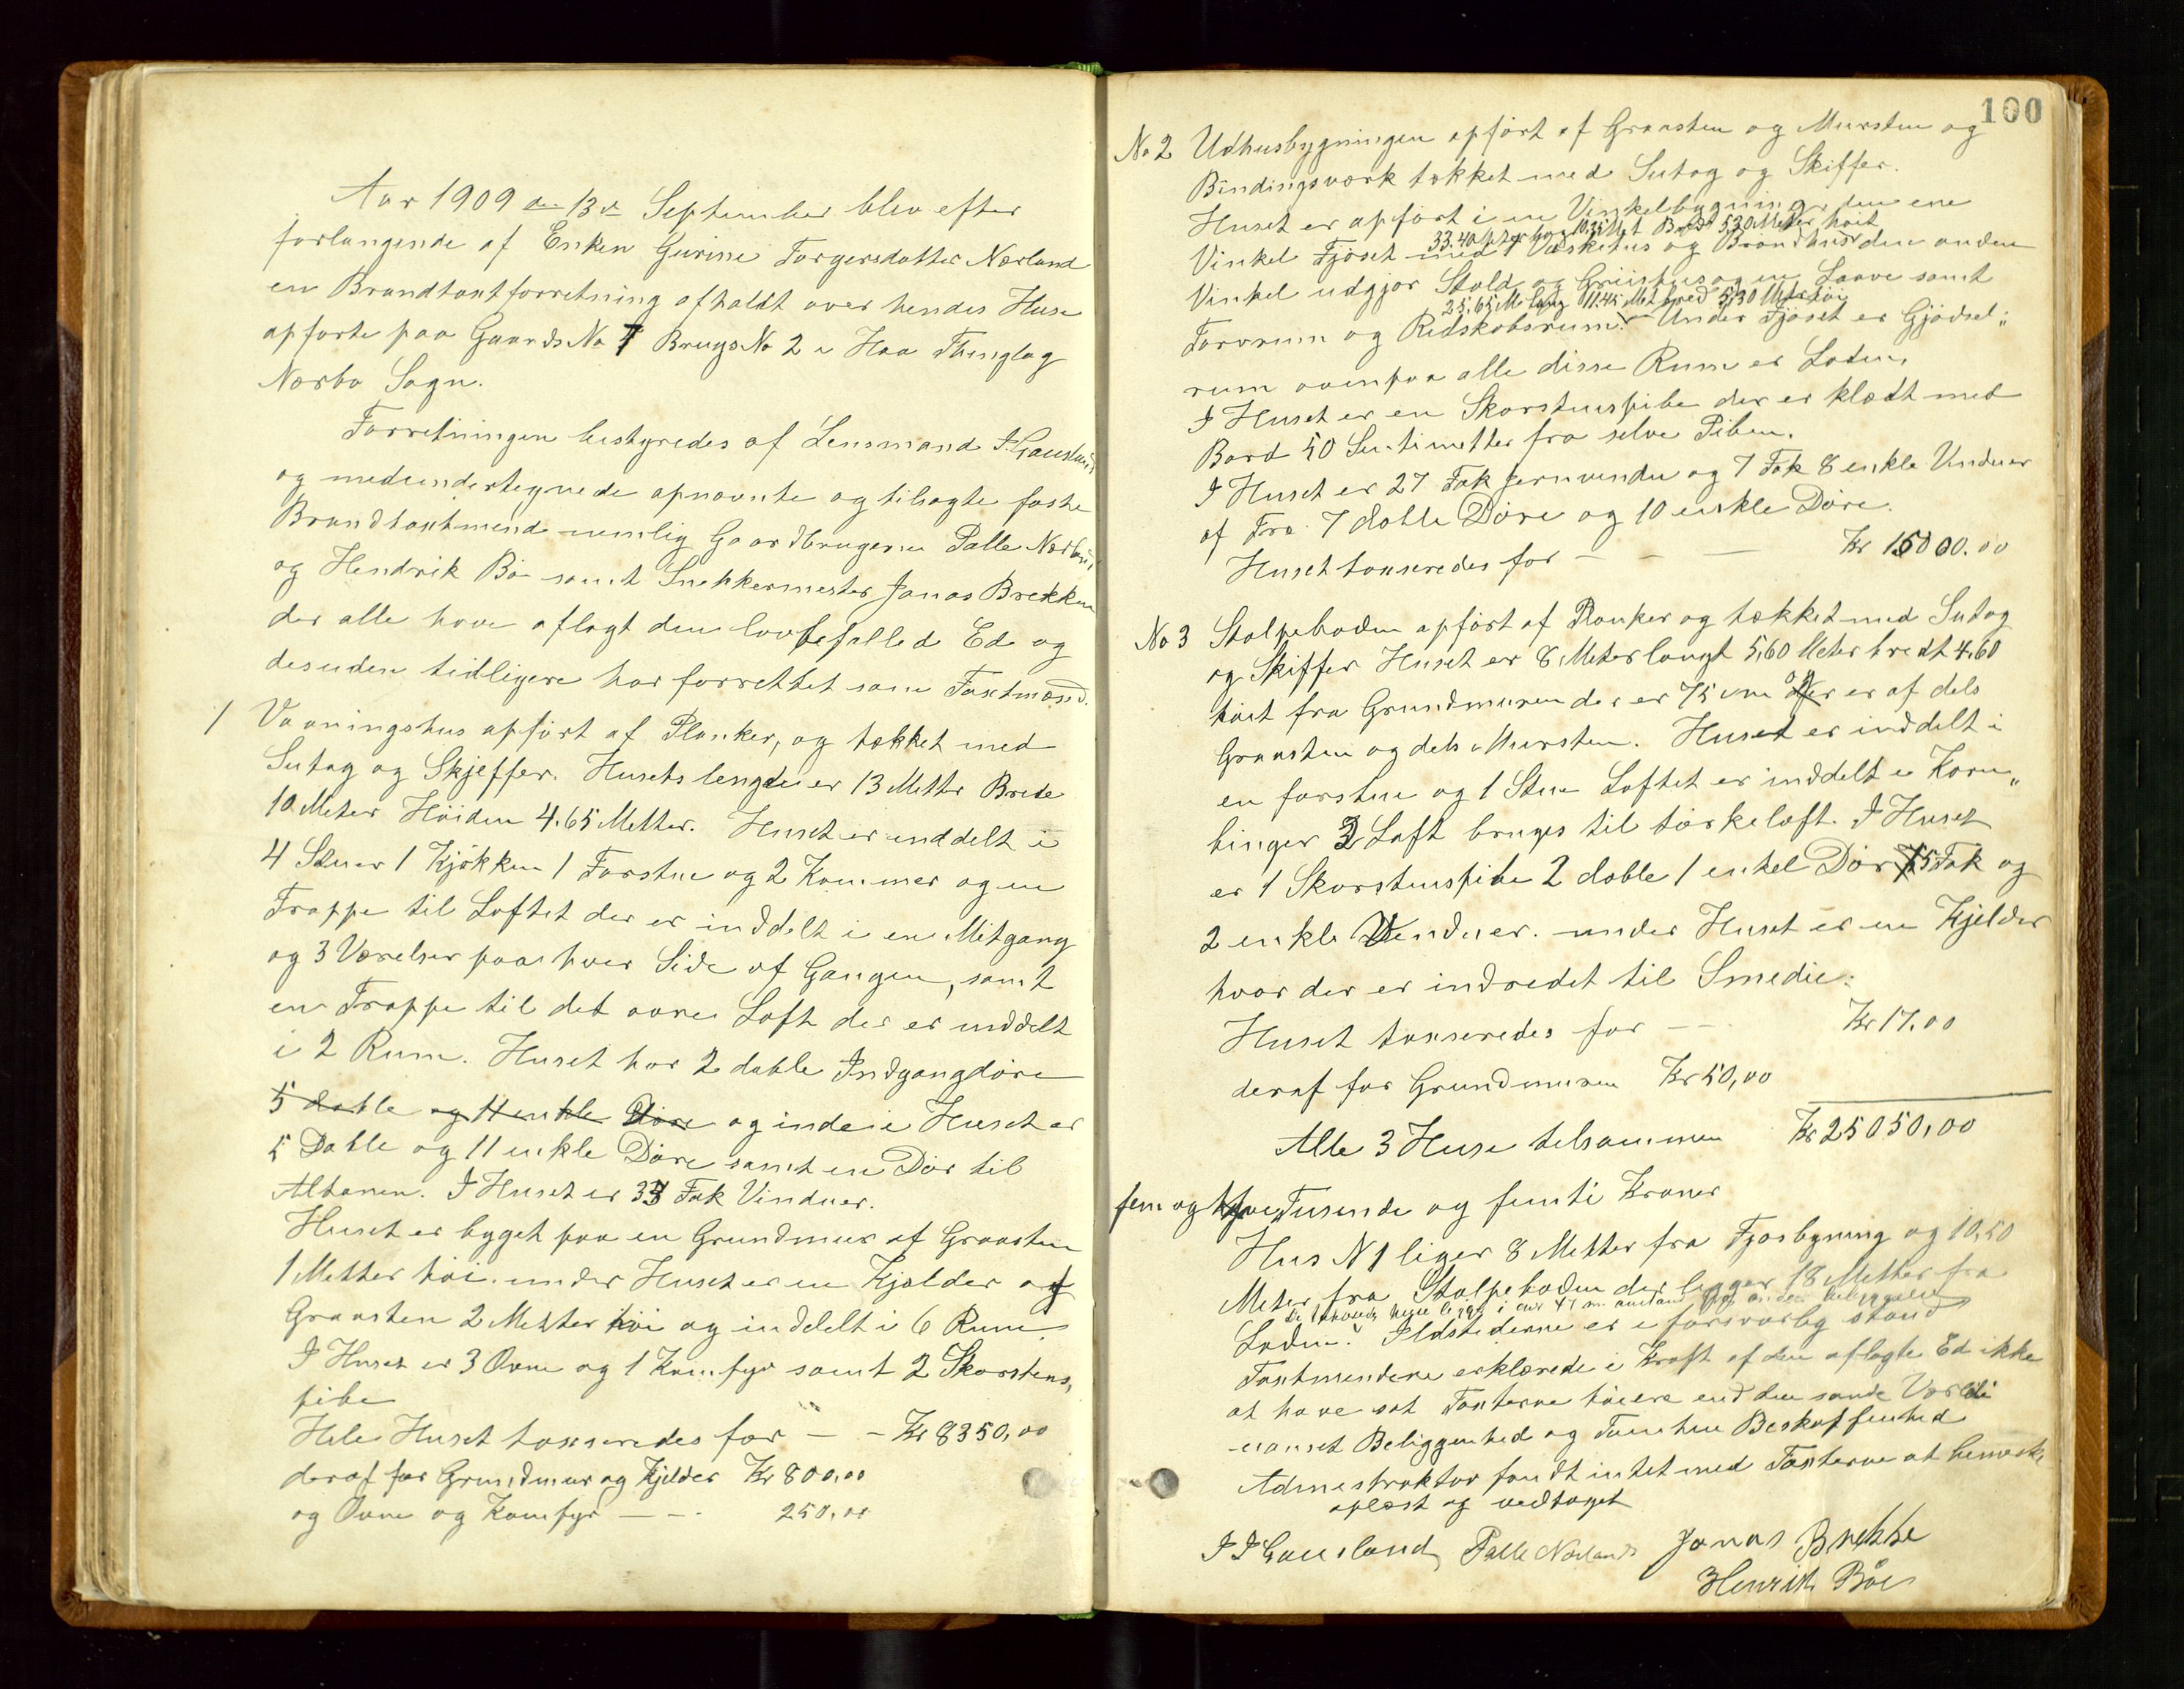 Aar 1909 den 13de September blev efter
forlangende af Enken Gurine Torgersdatter Nærland
en Brandtaxtforretning afholdt over hendes Huse
opførte paa GaardsNo 7 BrugsNo 2 i Haa Thinglag
Nærbø Sogn.
Forretningen bestyredes af Lensmand I. Gausland
og medundertegnede opnævnte og tilsagte faste
Brandtaxtmænd nemlig Gaardbrugerne Palle Nærland
og Hendrik Bø samt Snekkermester Jonas Brekken
der alle have aflagt den lovbefallede Ed og
desuden tidligere har forrettet som Taxtmænd.
1 Vaaningshus opført af Planker, og tækket med
Sutag og Skjeffer. Husets lengde er 13 Metter Brede
10 Meter Höiden 4.65 Metter. Huset er inddelt i
4 Stuer 1 Kjøkken 1 Forstue og 2 Kammer og en
Trappe til Loftet der er inddelt i en Mitgang
og 3 Værelser paa hver Side af Gangen, samt
en Trappe til det øvre Loft der er inddelt
i 2 Rum. Huset har 2 doble Indgangdøre
5 doble og 11 enkle Døre og inde i Huset er
5 Doble og 11 enkle Døre samt en Dør til
Altanen. I Huset er 33 Fak Vinduer.
Huset er bygget paa en Grundmur af Graasten
1 Metter høi. under Huset er en Kjælder af
Graasten 2 Metter høi og inddelt i 6 Rum.
I Huset er 3 Ovne og 1 Komfyr samt 2 Skorstens,
pibe
Hele Huset taxseredes for — - Kr 8350,00
deraf for Grundmur og Kjelder Kr 800,00
og Ovne og Komfyr — - - 250,00
100
No 2 Udhusbygningen opført af Graasten og Mursten og
Bindingsværk tækket med Sutag og Skiffer.
Huset er opført i en Vinkelbygning, den ene
33.40 Meter lang 10.35 Met Bred 5.30 Meter høit
Vinkel Fjøset med 1 Vaskehus og Brændhus den anden
Vinkel udgjør Stald og Griisehus og en Laave samt
25,65 M lang 11.45 Met bred 5.30 Meter høi
Forrum og Redskabsrum. Under Fjøset er Gjødsel„
rum ovenpaa alle disse Rum er Laden.
I Huset er en Skorstenspibe der er klædt med
Bord 50 Sentimetter fra selve Piben.
I Huset er 27 Fak Jernvindu og 7 Fak 8 enkle Vinduer
af Træ. 7 doble Døre og 10 enkle Døre.
Huset taxseredes for — — — Kr 15000.00
No 3 Stolpeboden opført af Planker og tækket med Sutag
og Skiffer Huset er 8 Meter langt 5,60 Meter bredt 4.60
høit fra Grundmuren der er 75 cm og er af dels
Graasten og dels Mursten. Huset er inddelt i
en forstue og 1 Stue Loftet er inddelt i Korn„
binger 2 Loft bruges til tørkeloft. I Huset
er 1 Skorstenspibe 2 doble 1 enkel Dør 5 Fak og
2 enkle Vinduer. under Huset er en Kjelder
hvor der er indredet til Smedie.
Huset taxseredes for — - Kr 17.00
deraf for Grundmuren Kr 50,00
Alle 3 Huse tilsammen Kr 25050,00
fem og tyve Tusende og femti Kroner
Hus N 1 liger 8 Metter fra Fjøsbygning og 10,50
Meter fra Stolpeboden der ligger 18 Metter fra
Laden. Ildstederne er i forsvarlig stand
Taxtmendene erklærede i Kraft af den aflagte Ed ikke
at have sat Taxterne høiere end den sande Værdi
uanset Beliggenhed og Tomten Beskaffenhed
Admestraktør fandt intet med Taxterne at bemærke
oplæst og vedtaget
I I Gausland Palle Nærland Jonas Brekke
Henrik Böe